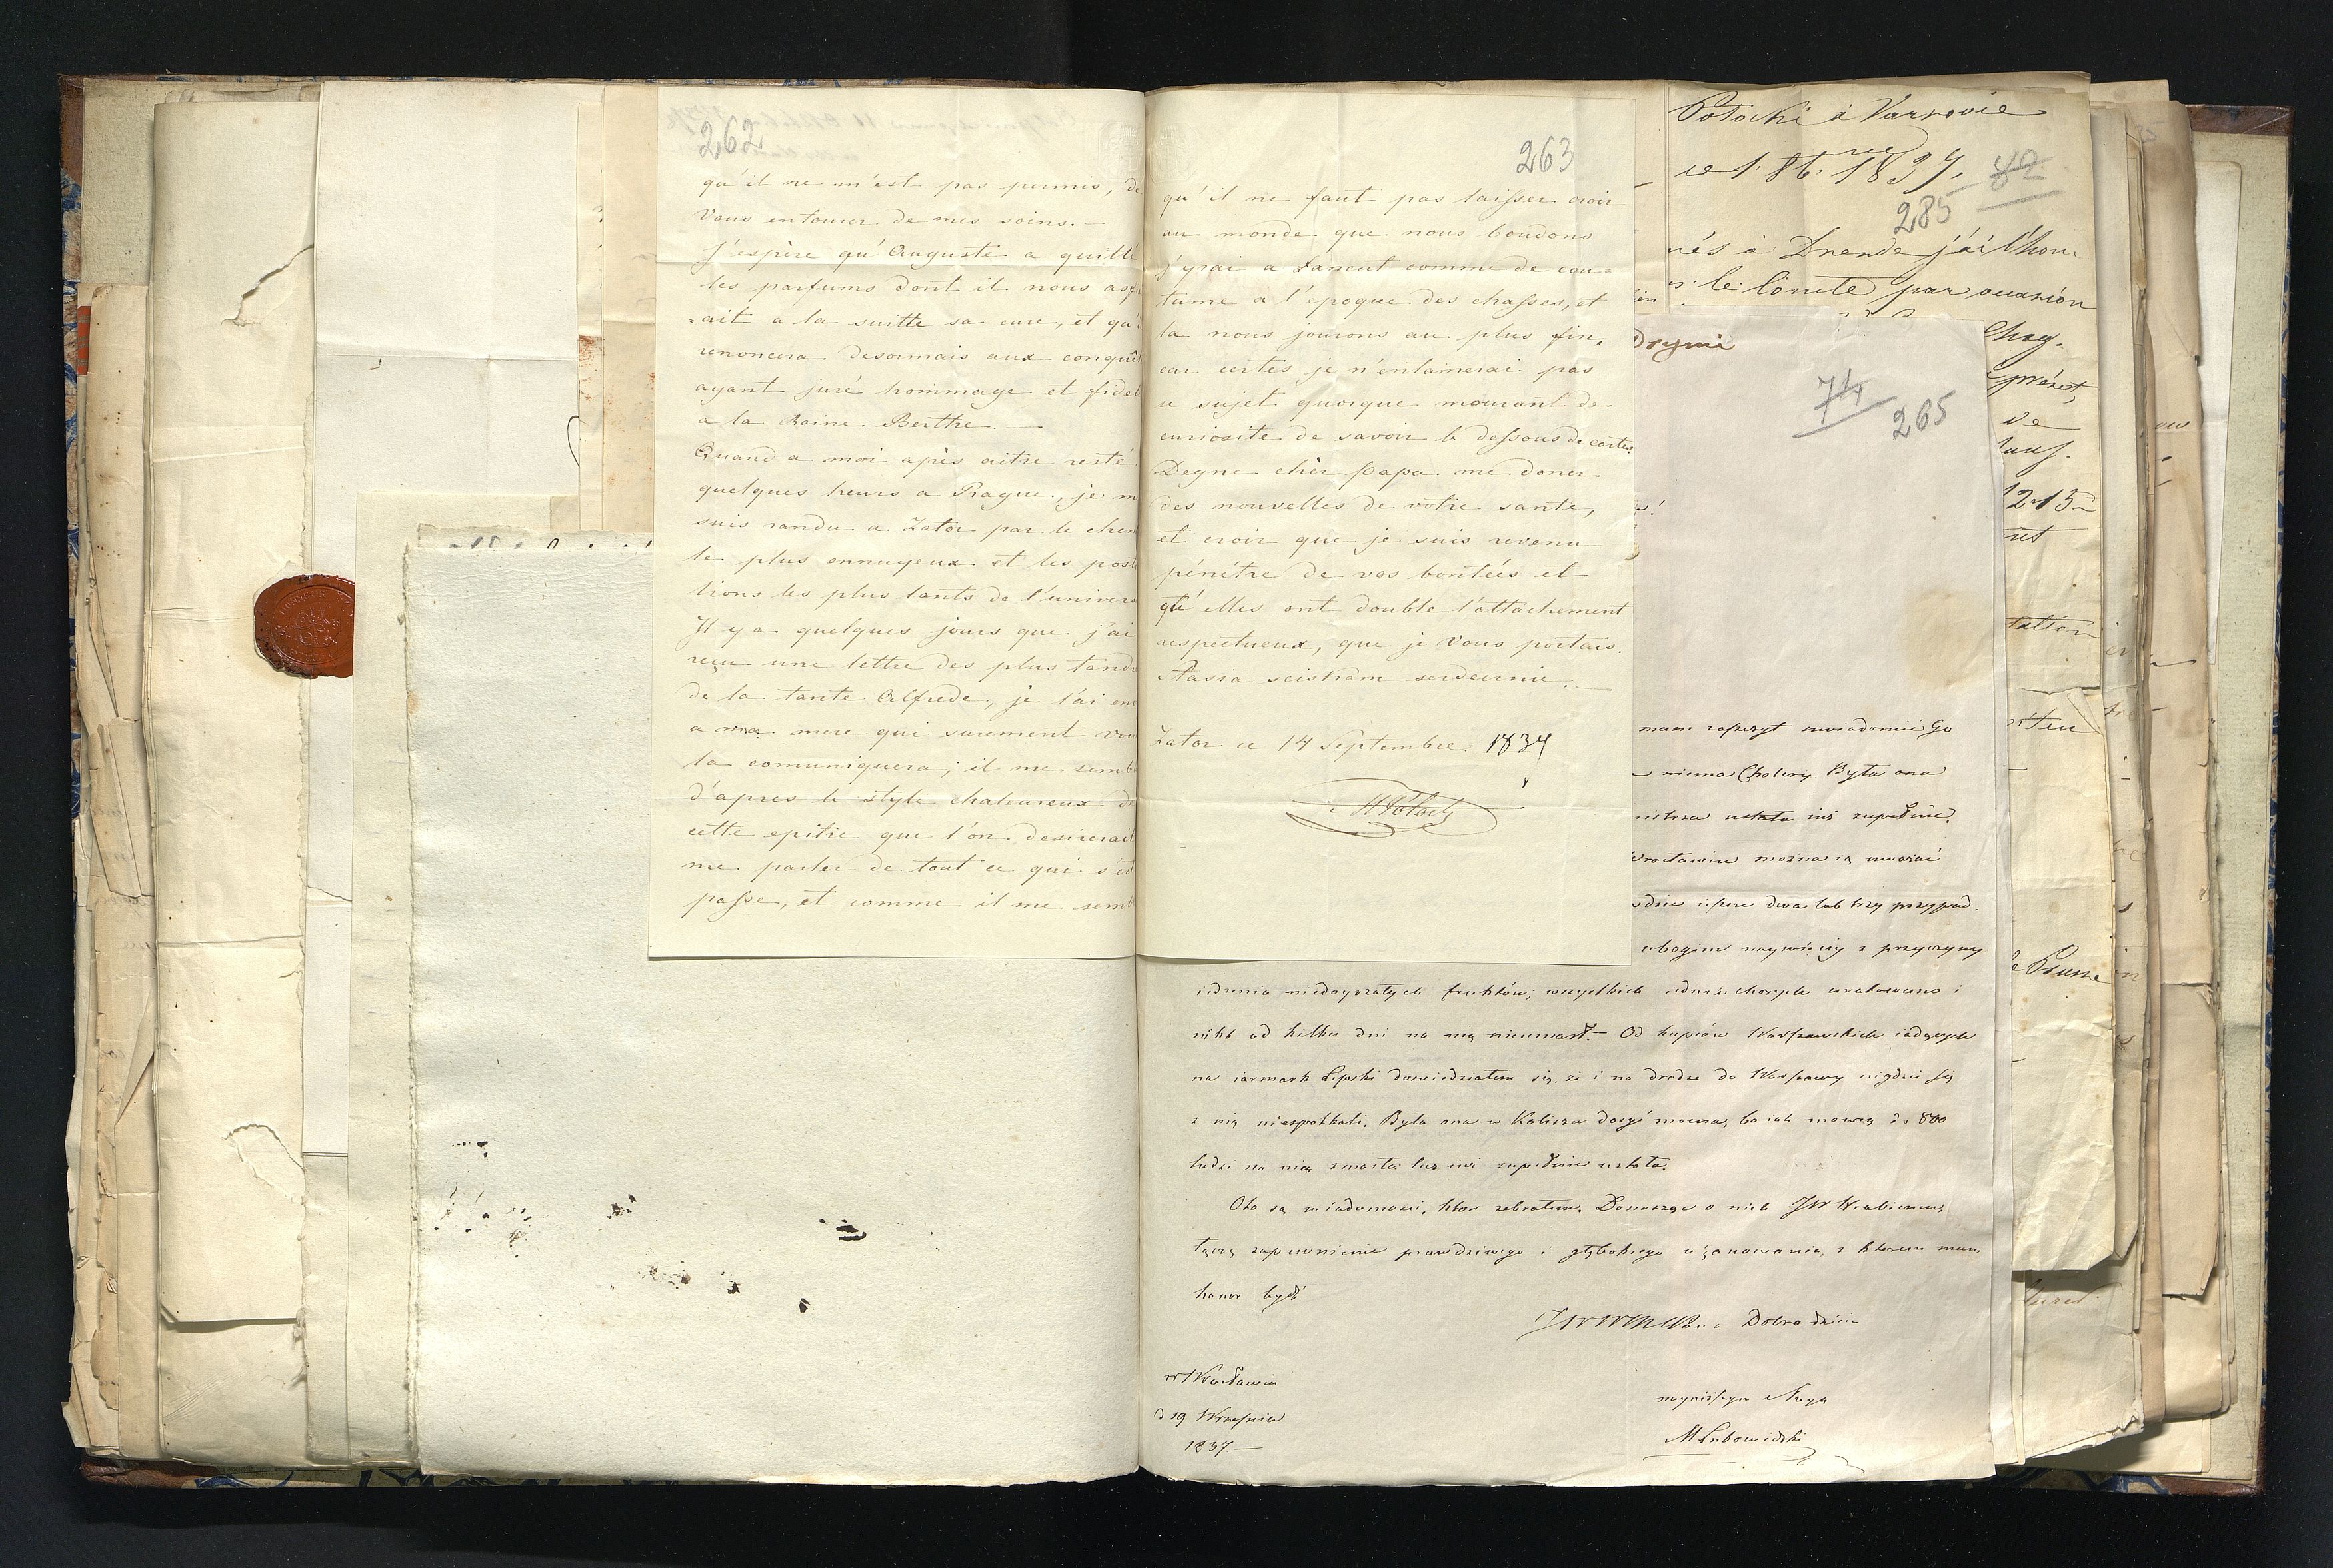 262
qu'il ne m'est pas permis, de
Vous entourer de mes soins. —
J'espère qu'Auguste a quitté
les parfums dont il nous asfi
ait a la suitte sa cure, et qu'i
renoncera desormais aux conquêt
ayant juré hommage et fidel
a la Raine Berthe. —
Quand a moi après aitre resté
quelques heurs a Prague, je m
suis randu a Zator par le chem
le plus ennuyeux et les posti
lions les plus lants de l'univers
Il y a quelques jours que j'ai
reçu une lettre des plus tandr
de la tante Alfrede, je l'ai en
a ma mere qui surement vou
la comuniquera; il me sembl
d'apres le style chaleureux de
cette epitre que l'on desirerait
me parler de tout ce qui s'est
passe, et comme il me sembl
263
qu'il ne faut pas laisser croir
au monde que nous boudons
j'yrai a Lancut comme de cou-
tume a l'epoque des chasses, et
la nous jourons au plus fin,
car certes je n'entamerai pas
ce sujet quoique mourant de
curiosite de savoir le dessous de cartes.
Degne chèr papa me doner
des nouvelles de votre sante,
et croir que je suis revenu
pénétre de vos bontées et
qu'elles ont double l'attachement
respectueux, que je Vous portais.
Stasia sciskam serdecznie. —
Zator ce 14 Septembre. 1837
MPotocki
Potocki à Varsovie
ce 1. 8b. re 1837.
82
285
nés à Dresde j'ai l'hon.
le Comte par occasion
Chag.
prézent,
de
12-15
de Prusse
74
265
mam zaszczyt uwiadomić Go
niema Cholery. Była ona
ustała iuż zupełnie.
Wrocławiu można ią uważać
gdzie ieszcze dwa lub trzy przypad.
ubogim naywięcéy z przyczyny
iedzenia niedoyrzałych fruktów; wszystkich iednak chorych uratowano i
nikt od kilku dni na nią nieumarł. — Od kupców Warszawskich iadących
na iarmark Lipski dowiedziałem się, że i na drodze do Warszawy nigdzie się
z nią niespotkali. Była ona w Kaliszu dosyć mocna, bo iak mówią do 800
ludzi na nią zmarło; lecz iuż zupełnie ustała.
Oto są wiadomości, które zebrałem. Donosząc o nich JW Hrabiemu,
łączę zapewnienie prawdziwego i głębokiego uszanowania, z którem mam
honor bydź
Dobrodzieia
nayniższym Sługą
MLubowidzki
w Wrocławiu
d 19 Września
1837 —